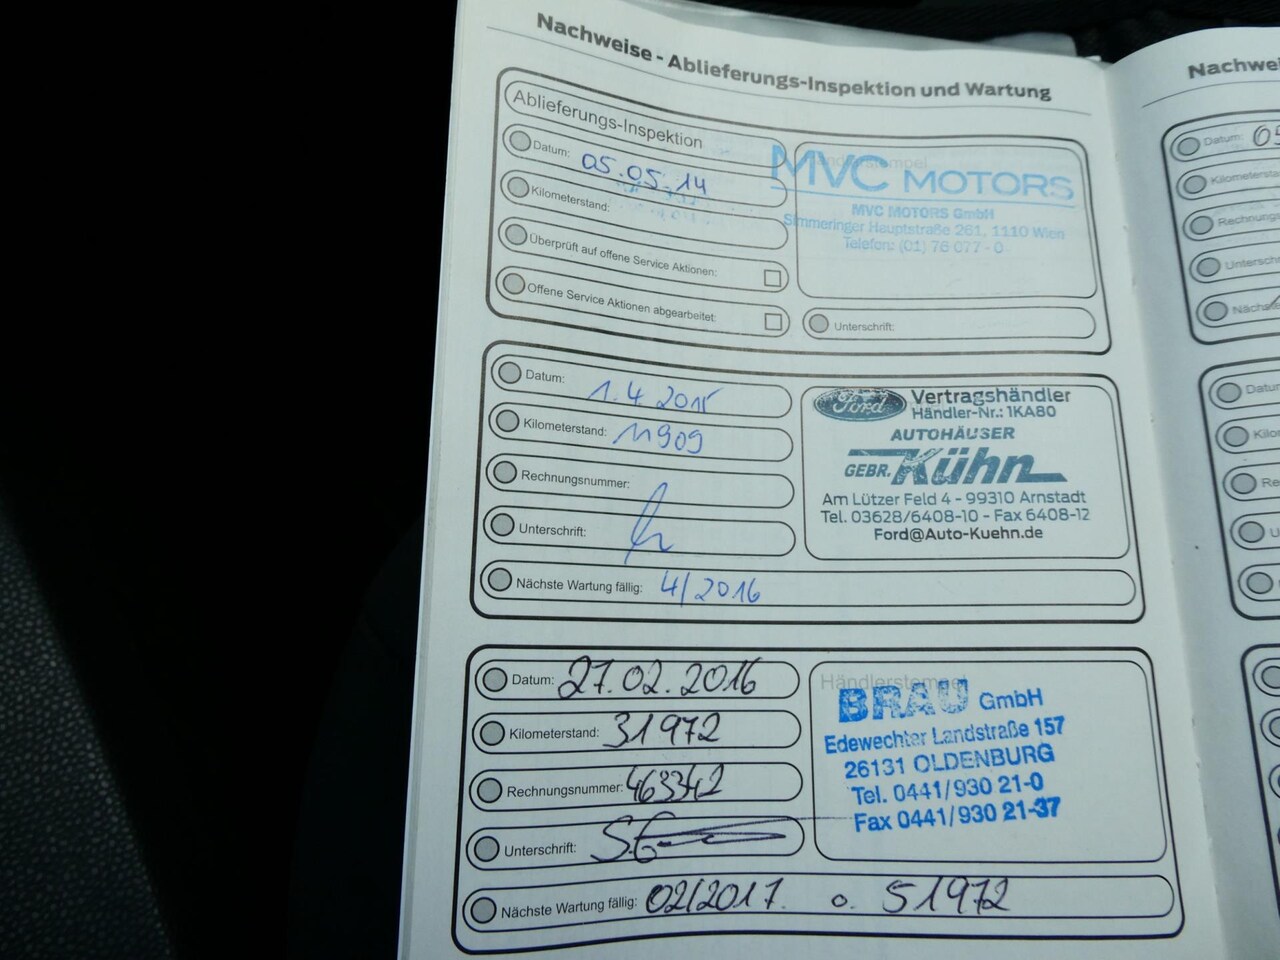 Nachweise - Ablieferungs-Inspektion und Wartung
Ablieferungs-Inspektion
Datum: 05.05.14
Kilometerstand:
Überprüft auf offene Service Aktionen:
Offene Service Aktionen abgearbeitet:
Händlerstempel
MVC MOTORS
MVC MOTORS GmbH
Simmeringer Hauptstraße 261, 1110 Wien
Telefon: (01) 76 077 - 0
Unterschrift:
Datum: 1.4.2015
Kilometerstand: 11909
Rechnungsnummer:
Unterschrift:
Nächste Wartung fällig: 4/2016
Ford Vertragshändler
Händler-Nr.: 1KA80
AUTOHÄUSER
GEBR. Kühn
Am Lützer Feld 4 - 99310 Arnstadt
Tel. 03628/6408-10 - Fax 6408-12
Ford@Auto-Kuehn.de
Datum: 27.02.2016
Kilometerstand: 31972
Rechnungsnummer: 463342
Unterschrift:
Nächste Wartung fällig: 02/2017. o. 51972
Händlerstempel
BRAU GmbH
Edewechter Landstraße 157
26131 OLDENBURG
Tel. 0441/930 21-0
Fax 0441/930 21-37
Nachwei
Datum: 05
Kilometersta
Rechnung
Untersch
Nächs
Datu
Kilo
Re
U